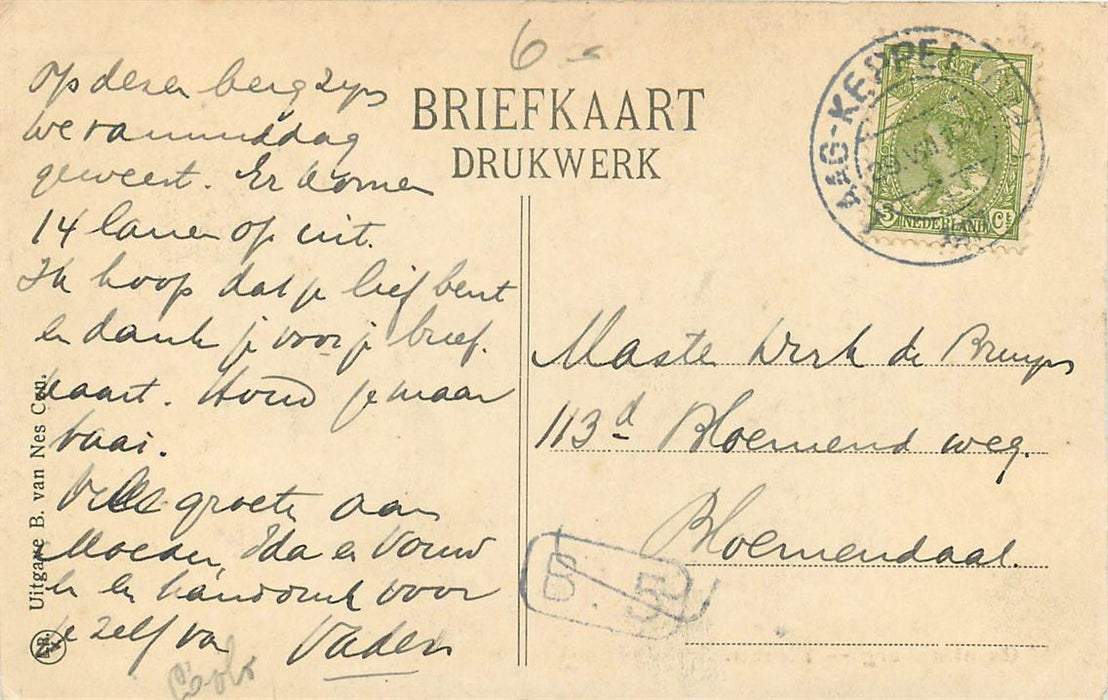 6
BRIEFKAART
DRUKWERK
Op dezen berg zijn
we vanmiddag
geweest. Er komen
14 lanen op uit.
Ik hoop dat je lief bent
en dank je voor je brief.
kaart. Houd je maar
taai.
Vele groeten aan
Moeder, Ida en
en een handdruk voor
je zelf van Vader
AAG-KEPPEL
3 NEDERLAND Ct
de Bruyn
113d Bloemend weg.
Bloemendaal.
B. 5
Uitgave B. van Nes Czn.